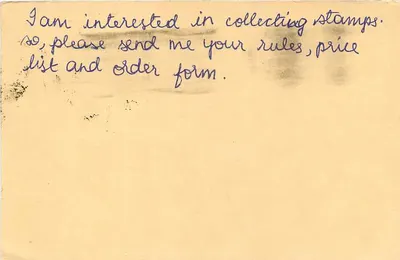 I am interested in collecting stamps.
so, please send me your rules, price
list and order form.